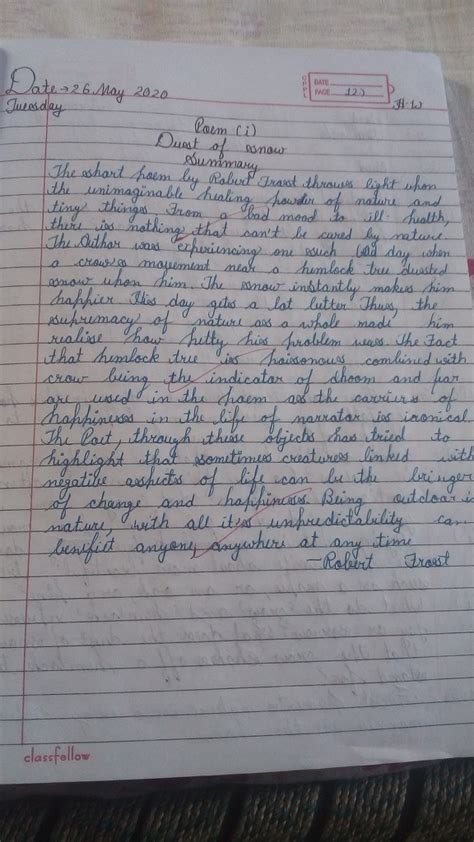 Date → 26 May 2020
Tuesday
DATE
PAGE 12
H.W
Poem (i)
Dust of snow
Summary
The short poem by Robert Frost throws light upon
the unimaginable healing power of nature and
tiny things. From a bad mood to ill-health,
there is nothing that can't be cured by nature.
The Author was experiencing one such bad day when
a crow's movement near a hemlock tree dusted
snow upon him. The snow instantly makes him
happier This day gets a lot better Thus, the
supremacy of nature as a whole made him
realise how petty his problem was. The Fact
that hemlock tree is poisonous combined with
crow being the indicator of dhoom and fear
are used in the poem as the carriers of
happiness in the life of narrator is ironical
The Poet, through these objects has tried to
highlight that sometimes creatures linked with
negative aspects of life can be the bringer
of change and happiness Being outdoor in
nature, with all its unpredictability can
benifit anyone, anywhere at any time
- Robert Frost
classfellow